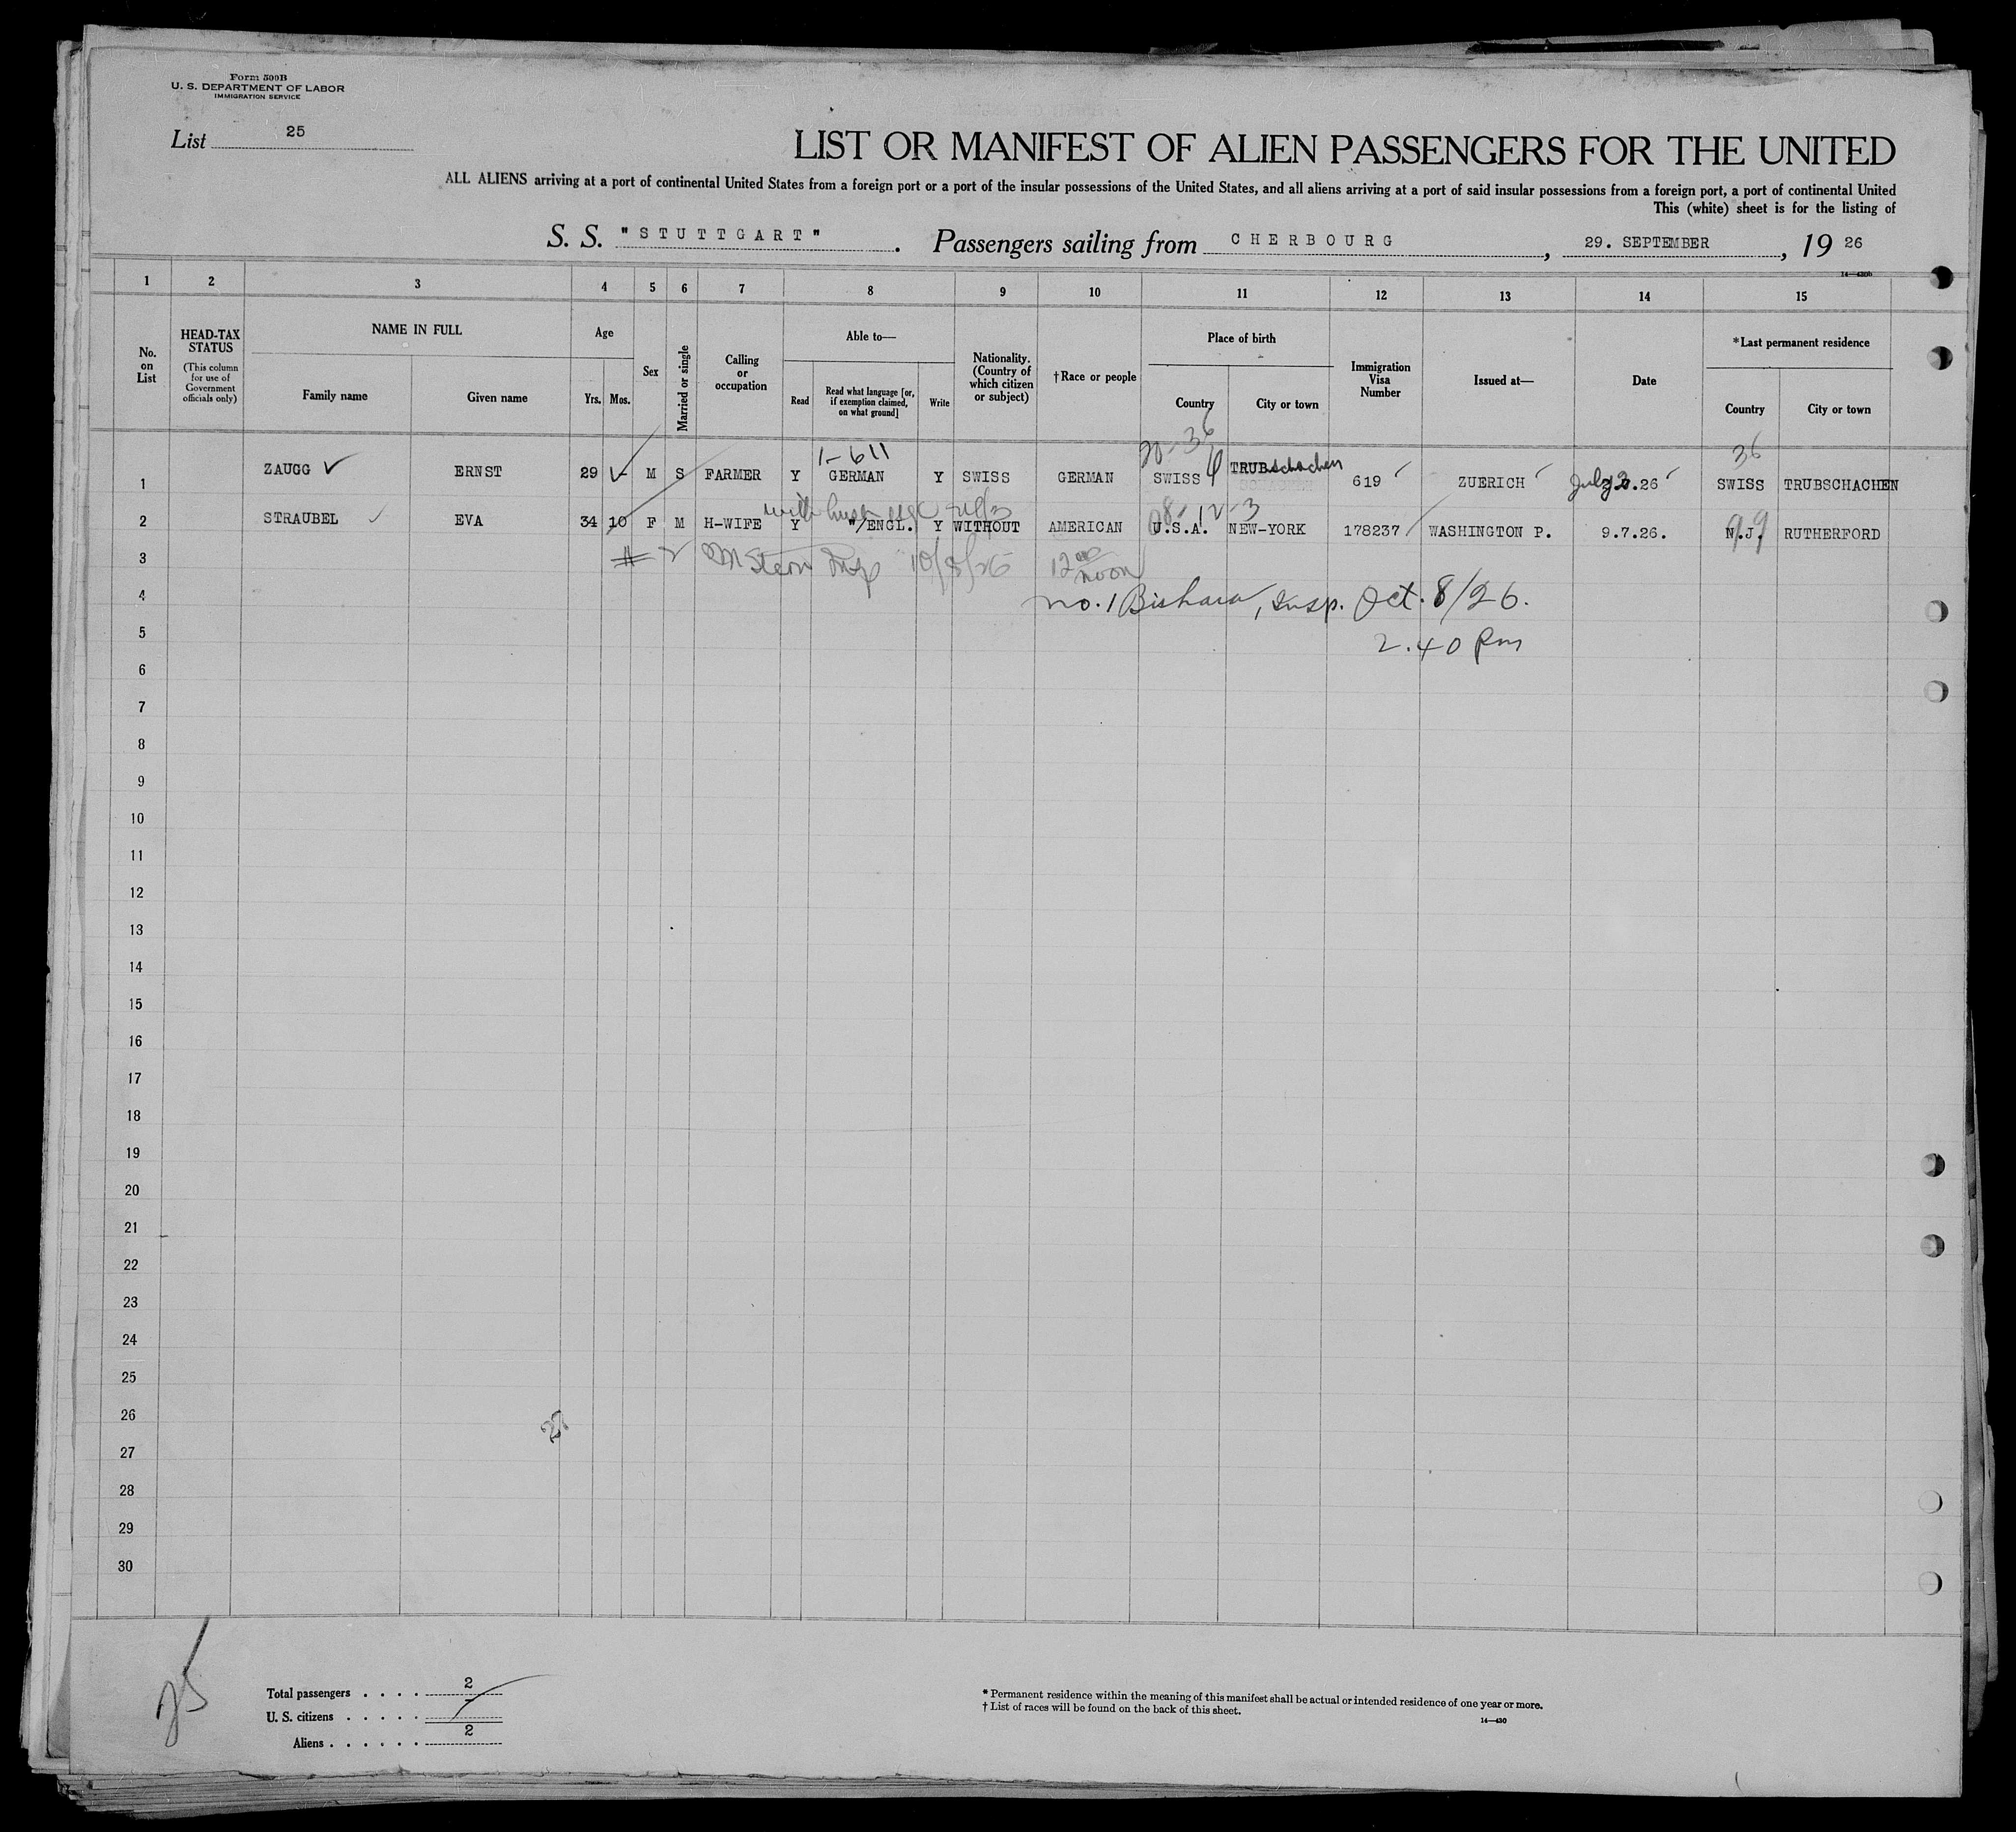 Form 500B
U. S. DEPARTMENT OF LABOR
IMMIGRATION SERVICE
List 25
LIST OR MANIFEST OF ALIEN PASSENGERS FOR THE UNITED
ALL ALIENS arriving at a port of continental United States from a foreign port or a port of the insular possessions of the United States, and all aliens arriving at a port of said insular possessions from a foreign port, a port of continental United
This (white) sheet is for the listing of
S. S. "STUTTGART" . Passengers sailing from CHERBOURG , 29. SEPTEMBER , 19 26
14—430b
1 2 3 4 5 6 7 8 9 10 11 12 13 14 15
No. on List
HEAD-TAX STATUS
(This column for use of Government officials only)
NAME IN FULL
Family name Given name
Age
Yrs. Mos.
Sex
Married or single
Calling or occupation
Able to—
Read
Read what language [or, if exemption claimed, on what ground]
Write
Nationality. (Country of which citizen or subject)
†Race or people
Place of birth
Country City or town
Immigration Visa Number
Issued at—
Date
*Last permanent residence
Country City or town
1-611 20-36 36
1 ZAUGG ERNST 29 M S FARMER Y GERMAN Y SWISS GERMAN SWISS TRUBschachen 619 ZUERICH July 2.26 SWISS TRUBSCHACHEN
2 STRAUBEL EVA 34 10 F M H-WIFE Y "/ENGL. Y WITHOUT AMERICAN U.S.A. NEW-YORK 178237 WASHINGTON P. 9.7.26. N.J. RUTHERFORD
3 # 2 M Stern Insp 10/8/26 12 00 noon
4 no. 1 Bishara, Insp. Oct. 8/26.
5 2.40 Pm
6
7
8
9
10
11
12
13
14
15
16
17
18
19
20
21
22
23
24
25
26
27
28
29
30
25
Total passengers . . . . 2
U. S. citizens . . . . .
Aliens . . . . . . 2
* Permanent residence within the meaning of this manifest shall be actual or intended residence of one year or more.
† List of races will be found on the back of this sheet.
14—430